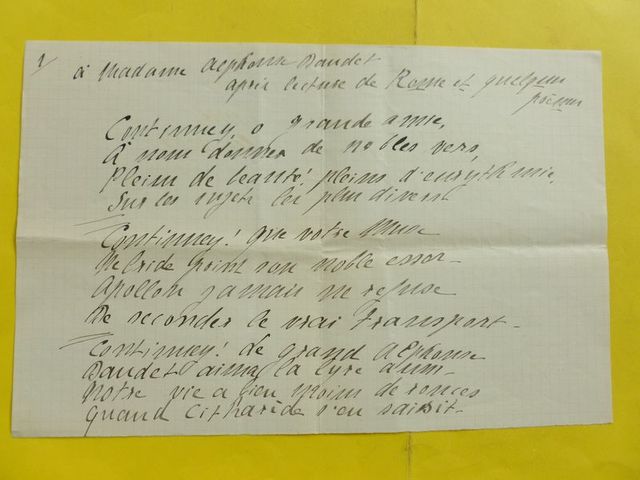 1/
à Madame Alphonse Daudet
après lecture de Rome et quelques
poèmes
Continuez, o grande amie,
à nous donner de nobles vers,
Pleins de beauté! pleins d'eurythmie,
Sur les sujets les plus divers
Continuez! Que votre Muse
Ne bride point son noble essor-
Apollon jamais ne refuse
De seconder le vrai transport-
Continuez! Le grand Alphonse
Daudet aima la lyre
Notre vie a bien moins de ronces
Quand Citharède s'en saisit-